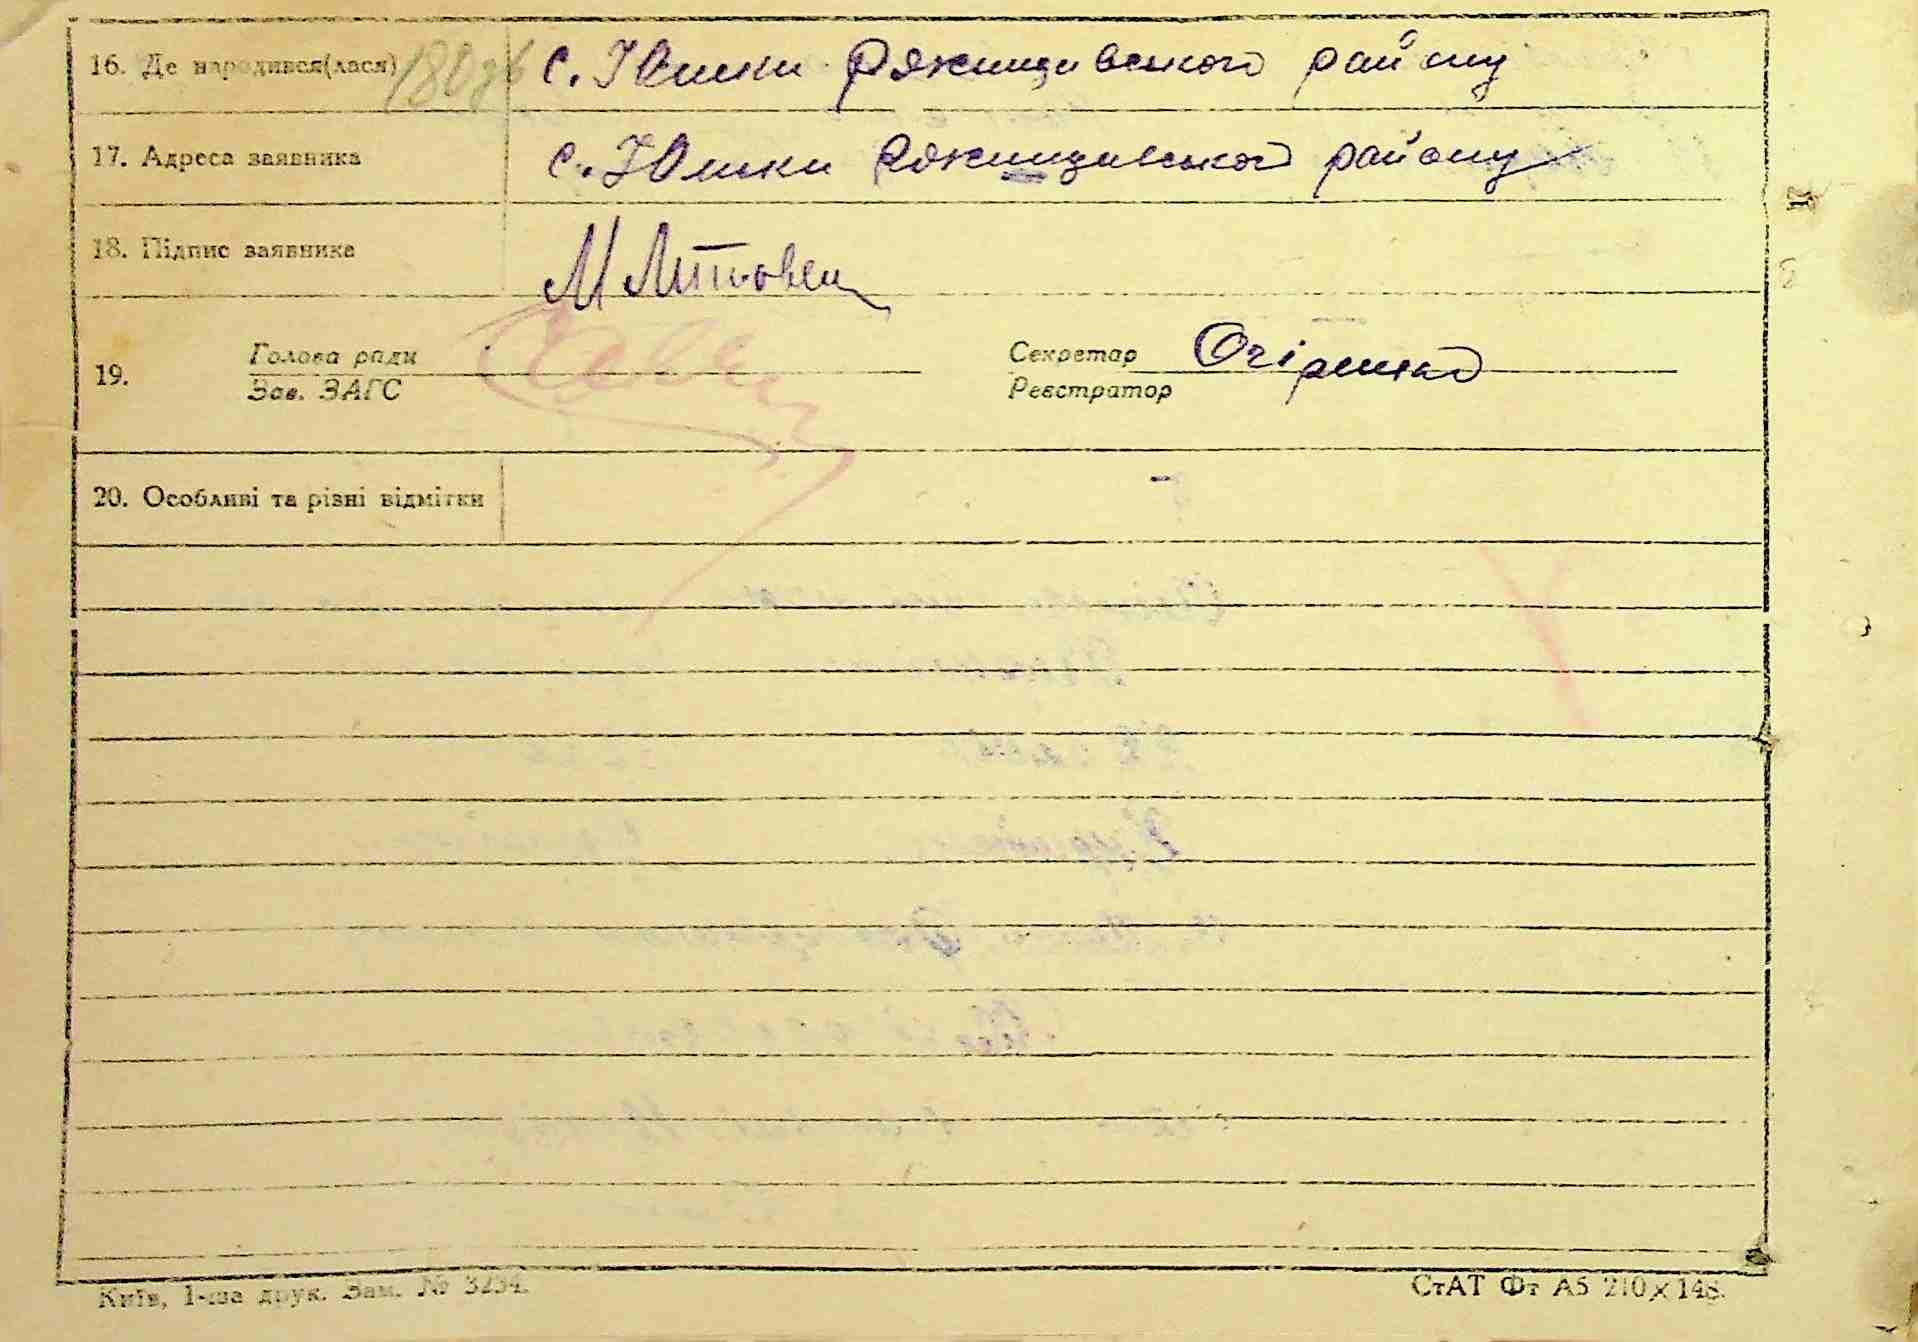 16. Де народився(лася) с. Юшки Ржищивського району
17. Адреса заявника с. Юшки Ржищивського району
18. Підпис заявника М Литовец
19. Голова ради
Зав. ЗАГС
Секретар
Реєстратор
20. Особливі та різні відмітки -
Київ, 1-ша друк. Зам. № 3234.
СтАТ Фт А5 210×148.